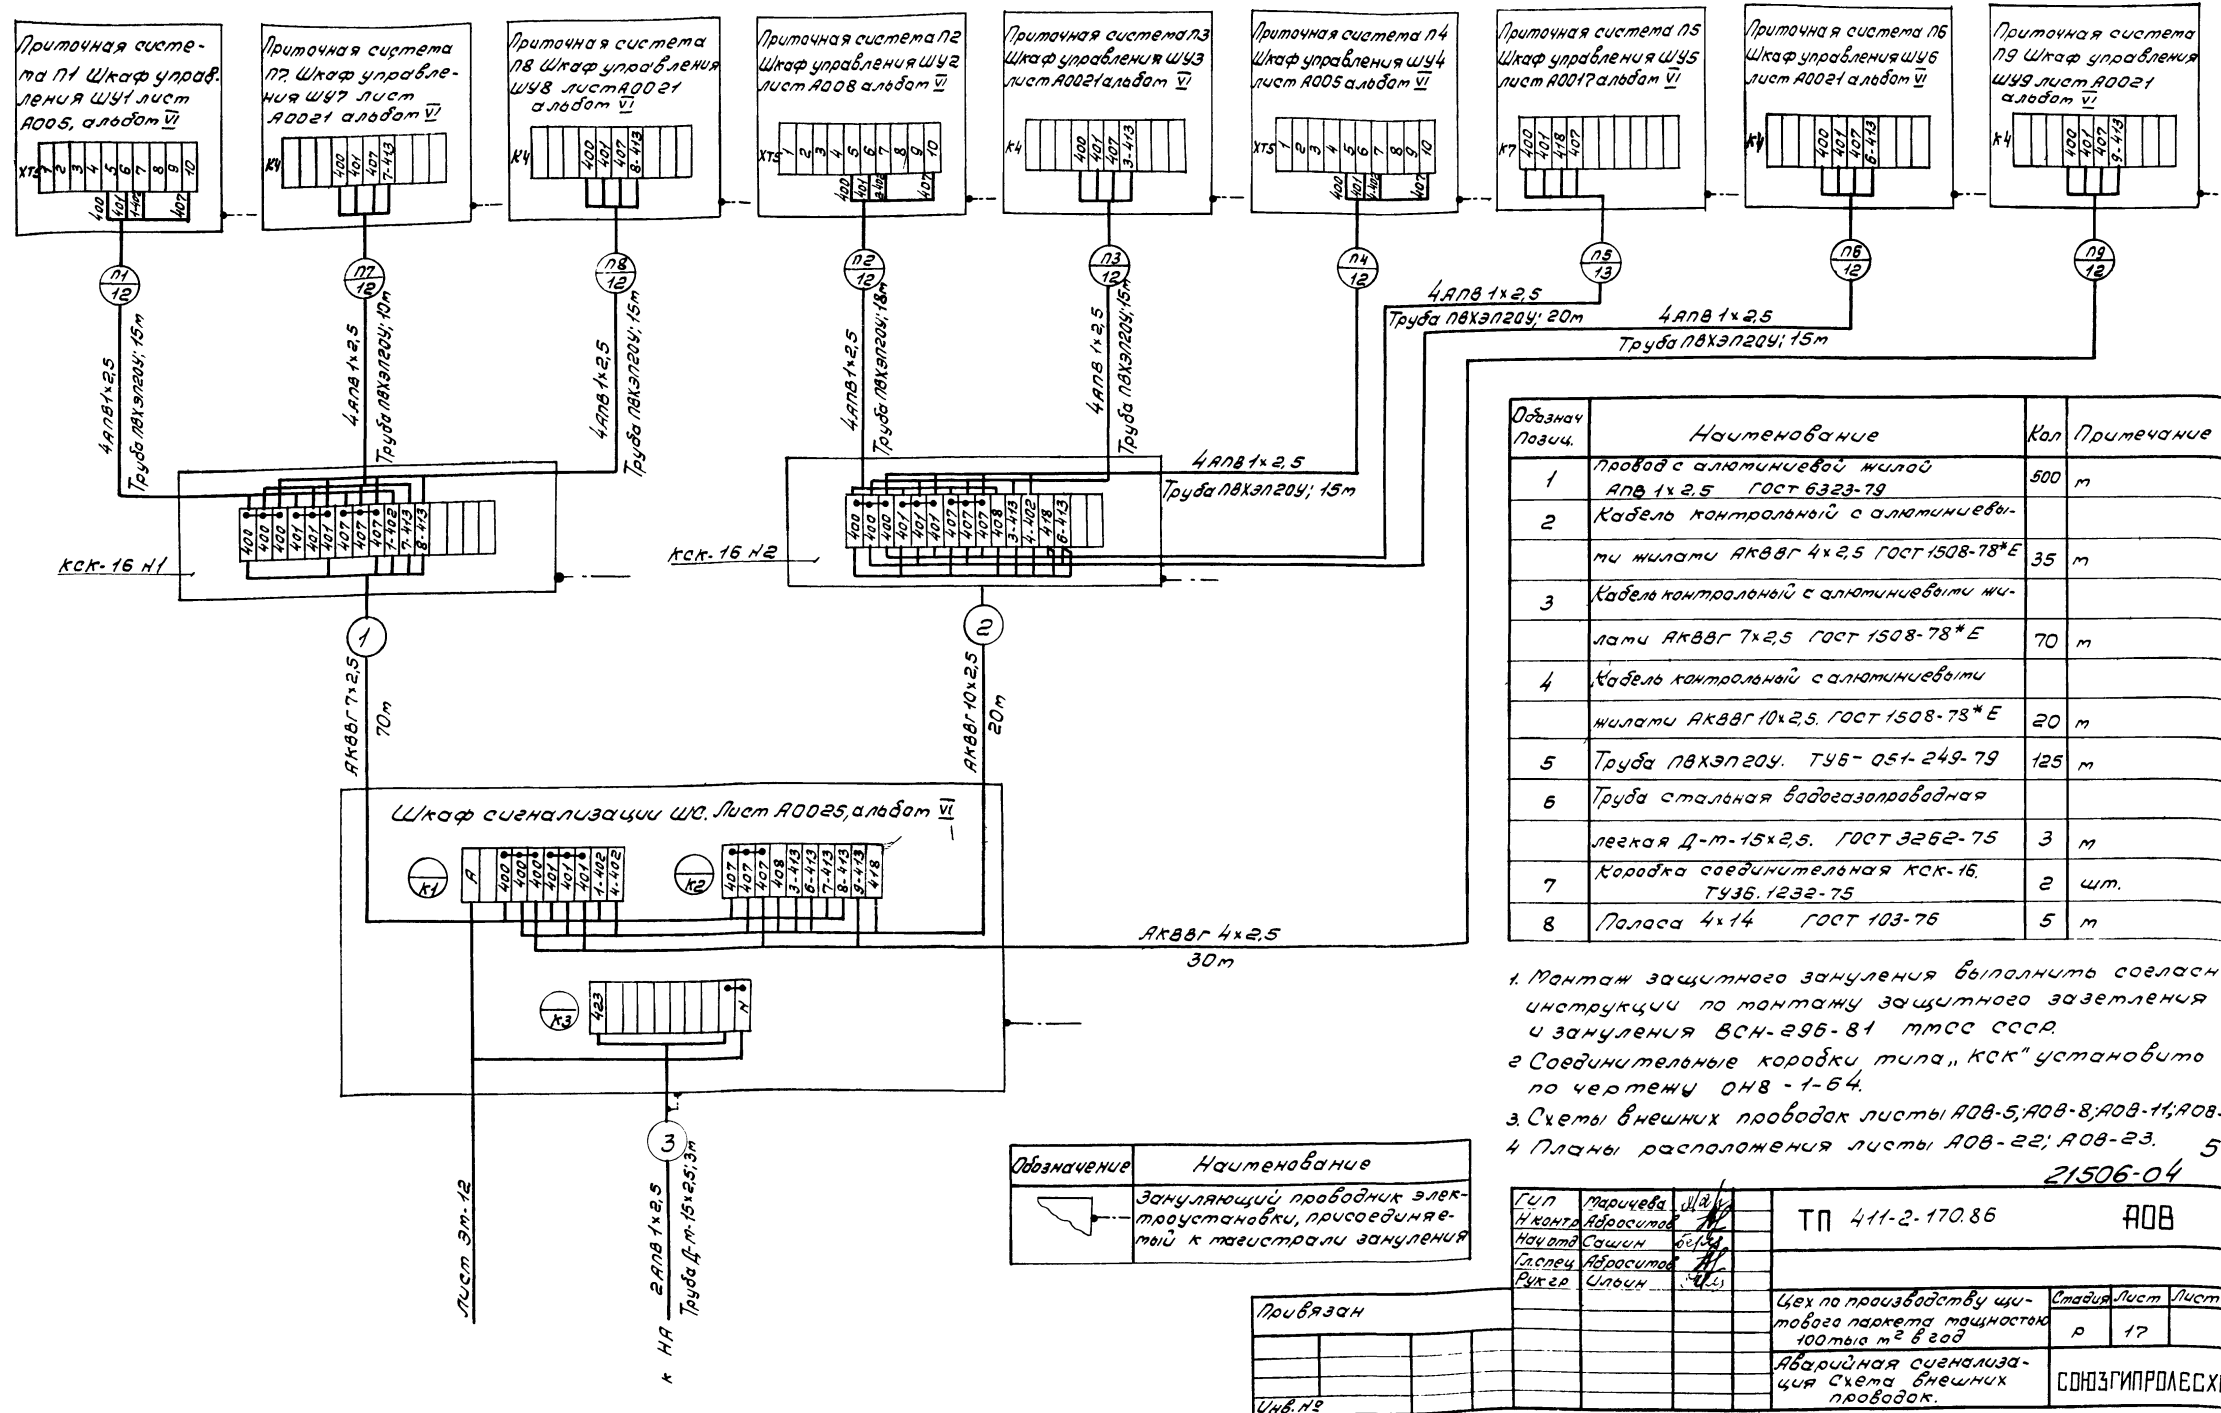 Приточная систе-
ма П1 Шкаф управ-
ления ШУ1 лист
А005, альбом VI
ХТ5 1 2 3 4 5 6 7 8 9 10
400 401 1-402 407
Приточная система
П7 Шкаф управле-
ния ШУ7 лист
А0021 альбом VI
К4 400 401 407 7-413
Приточная система
П8 Шкаф управления
ШУ8 лист А0021
альбом VI
К4 400 401 407 8-413
Приточная система П2
Шкаф управления ШУ2
лист А008 альбом VI
ХТ5 1 2 3 4 5 6 7 8 9 10
400 401 2-402 407
Приточная система П3
Шкаф управления ШУ3
лист А0021 альбом VI
К4 400 401 407 3-413
Приточная система П4
Шкаф управления ШУ4
лист А005 альбом VI
ХТ5 1 2 3 4 5 6 7 8 9 10
400 401 4-402 407
Приточная система П5
Шкаф управления ШУ5
лист А0017 альбом VI
К7 400 401 418 407
Приточная система П6
Шкаф управления ШУ6
лист А0021 альбом VI
К4 400 401 407 6-413
Приточная система
П9 Шкаф управления
ШУ9 лист А0021
альбом VI
К4 400 401 407 9-413
П1 12
П7 12
П8 12
П2 12
П3 12
П4 12
П5 13
П6 12
П9 12
4АПВ 1×2,5
Труба ПВХЭП20У; 15м
4АПВ 1×2,5
Труба ПВХЭП20У; 10м
4АПВ 1×2,5
Труба ПВХЭП20У; 15м
4АПВ 1×2,5
Труба ПВХЭП20У; 18м
4АПВ 1×2,5
Труба ПВХЭП20У; 15м
4АПВ 1×2,5
Труба ПВХЭП20У; 15м
4АПВ 1×2,5
Труба ПВХЭП20У; 20м
4АПВ 1×2,5
Труба ПВХЭП20У; 15м
КСК-16 №1
400 400 400 401 401 401 407 407 407 1-402 7-413 8-413
КСК-16 №2
400 400 400 401 401 401 407 407 407 408 3-413 4-402 418 6-413
1
АКВВГ 7×2,5
70м
2
АКВВГ 10×2,5
20м
Шкаф сигнализации ШС. Лист А0025, альбом VI
К1 А 400 400 400 401 401 401 1-402 4-402
К2 407 407 407 408 3-413 6-413 7-413 8-413 9-413 418
АКВВГ 4×2,5
30м
К3 423 N
3
Лист ЭМ-12
к НА 2АПВ 1×2,5
Труба Д-м-15×2,5; 3м
Обознач позиц. Наименование Кол Примечание
1 Провод с алюминиевой жилой
АПВ 1×2,5 ГОСТ 6323-79 500 м
2 Кабель контрольный с алюминиевы-
ми жилами АКВВГ 4×2,5 ГОСТ 1508-78*Е 35 м
3 Кабель контрольный с алюминиевыми жи-
лами АКВВГ 7×2,5 ГОСТ 1508-78*Е 70 м
4 Кабель контрольный с алюминиевыми
жилами АКВВГ 10×2,5. ГОСТ 1508-78*Е 20 м
5 Труба ПВХЭП20У. ТУ6-051-249-79 125 м
6 Труба стальная водогазопроводная
легкая Д-м-15×2,5. ГОСТ 3262-75 3 м
7 Коробка соединительная КСК-16.
ТУ36.1232-75 2 шт.
8 Полоса 4×14 ГОСТ 103-76 5 м
1. Монтаж защитного зануления выполнить согласн
инструкции по монтажу защитного заземления
и зануления ВСН-296-81 ММСС СССР.
2 Соединительные коробки типа „КСК" установить
по чертежу ОН8-1-64.
3. Схемы внешних проводок листы АОВ-5; АОВ-8; АОВ-11; АОВ-
4 Планы расположения листы АОВ-22; АОВ-23.
5
21506-04
Обозначение Наименование
Зануляющий проводник элек-
троустановки, присоединяе-
мый к магистрали зануления
ГИП Маричева
Н контр Абросимов
Нач отд Сашин
Гл.спец Абросимов
Рук гр Ильин
ТП 411-2-170.86 АОВ
Цех по производству щи-
тового паркета мощностью
100 тыс м² в год
Стадия Лист Лист
Р 17
Аварийная сигнализа-
ция Схема внешних
проводок.
СОЮЗГИПРОЛЕСХ
Привязан
Инв. №